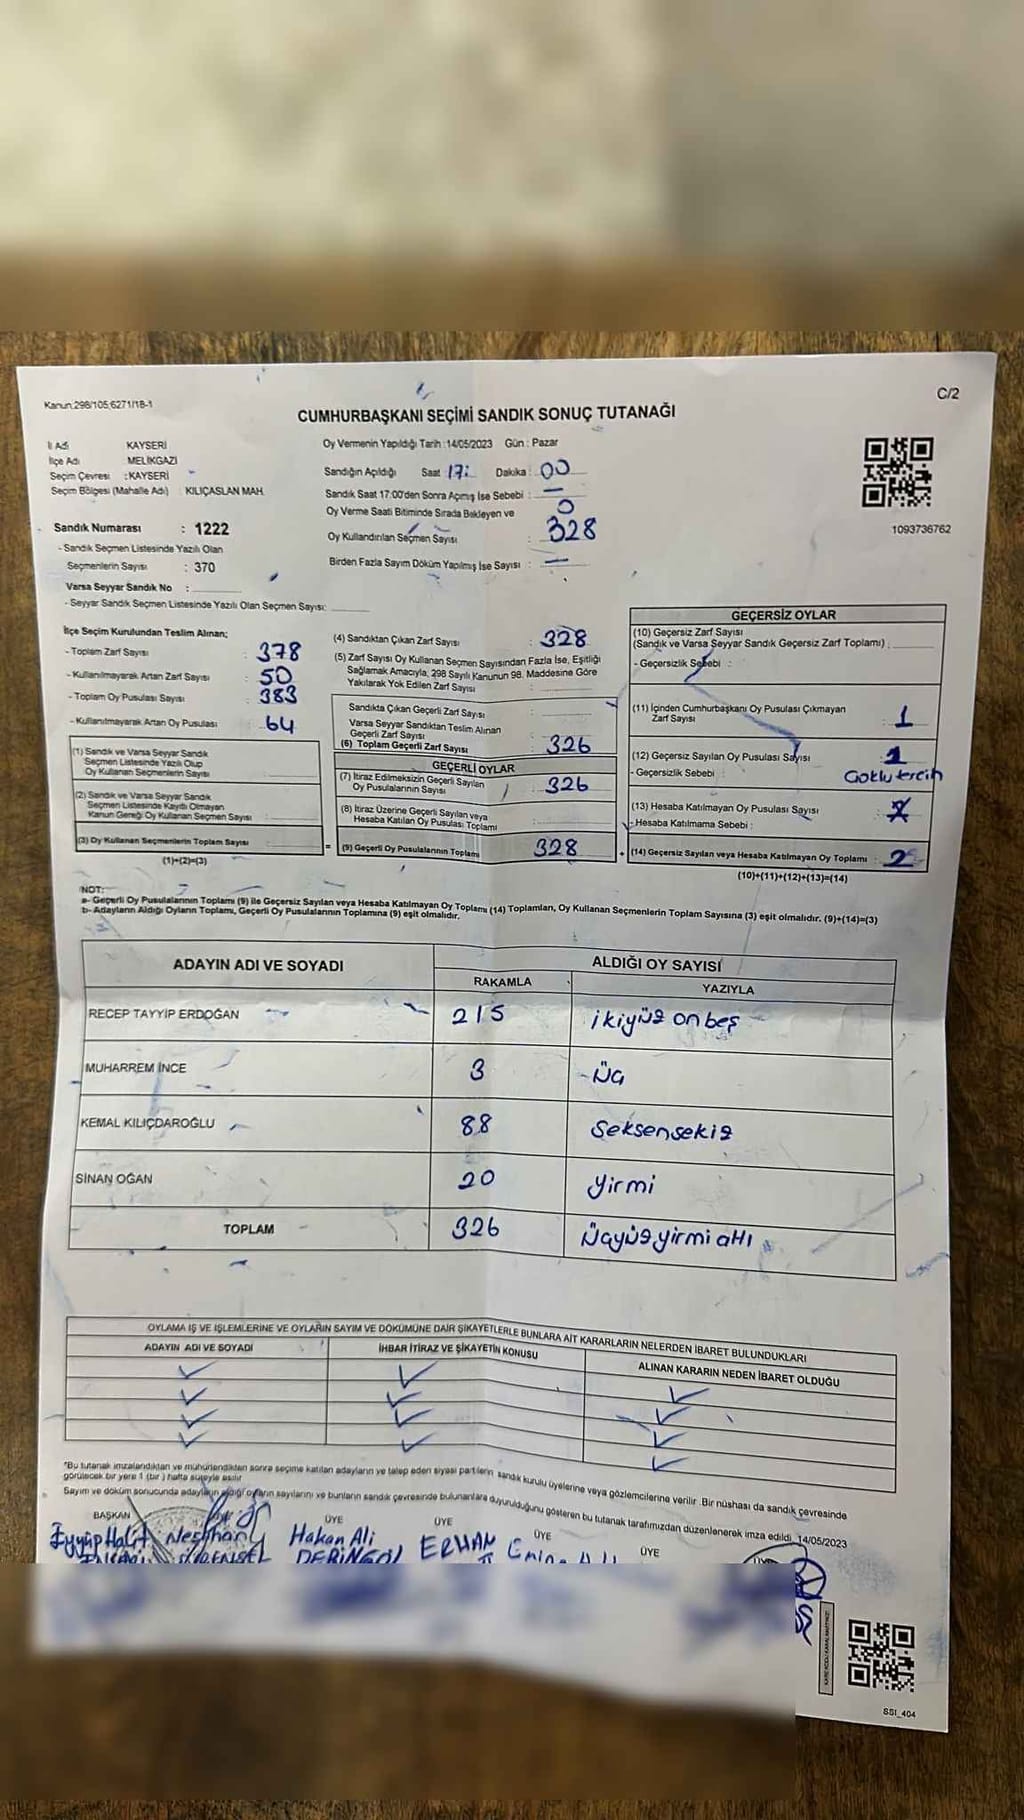 Kanun:298/105;6271/18-1
C/2
CUMHURBAŞKANI SEÇİMİ SANDIK SONUÇ TUTANAĞI
İl Adı KAYSERİ
İlçe Adı MELİKGAZİ
Seçim Çevresi : KAYSERİ
Seçim Bölgesi (Mahalle Adı) : KILIÇASLAN MAH.
Sandık Numarası : 1222
- Sandık Seçmen Listesinde Yazılı Olan
Seçmenlerin Sayısı : 370
Varsa Seyyar Sandık No :
- Seyyar Sandık Seçmen Listesinde Yazılı Olan Seçmen Sayısı:
Oy Vermenin Yapıldığı Tarih : 14/05/2023 Gün : Pazar
Sandığın Açıldığı Saat 17: Dakika : 00
Sandık Saat 17:00'den Sonra Açmış İse Sebebi : —
Oy Verme Saati Bitiminde Sırada Bekleyen ve 0
Oy Kullandırılan Seçmen Sayısı : 328
Birden Fazla Sayım Döküm Yapılmış İse Sayısı : —
1093736762
İlçe Seçim Kurulundan Teslim Alınan;
- Toplam Zarf Sayısı : 378
- Kullanılmayarak Artan Zarf Sayısı : 50
- Toplam Oy Pusulası Sayısı : 383
- Kullanılmayarak Artan Oy Pusulası : 64
(1) Sandık ve Varsa Seyyar Sandık
Seçmen Listesinde Yazılı Olup
Oy Kullanan Seçmenlerin Sayısı :
(2) Sandık ve Varsa Seyyar Sandık
Seçmen Listesinde Kaydı Olmayan
Kanun Gereği Oy Kullanan Seçmen Sayısı :
(3) Oy Kullanan Seçmenlerin Toplam Sayısı :
(1)+(2)=(3)
(4) Sandıktan Çıkan Zarf Sayısı : 328
(5) Zarf Sayısı Oy Kullanan Seçmen Sayısından Fazla İse, Eşitliği
Sağlamak Amacıyla, 298 Sayılı Kanunun 98. Maddesine Göre
Yakılarak Yok Edilen Zarf Sayısı :
Sandıkta Çıkan Geçerli Zarf Sayısı :
Varsa Seyyar Sandıktan Teslim Alınan
Geçerli Zarf Sayısı :
(6) Toplam Geçerli Zarf Sayısı : 326
GEÇERLİ OYLAR
(7) İtiraz Edilmeksizin Geçerli Sayılan
Oy Pusulalarının Sayısı : 326
(8) İtiraz Üzerine Geçerli Sayılan veya
Hesaba Katılan Oy Pusulası Toplamı :
= (9) Geçerli Oy Pusulalarının Toplamı : 328
GEÇERSİZ OYLAR
(10) Geçersiz Zarf Sayısı
(Sandık ve Varsa Seyyar Sandık Geçersiz Zarf Toplamı) :
- Geçersizlik Sebebi :
(11) İçinden Cumhurbaşkanı Oy Pusulası Çıkmayan
Zarf Sayısı : 1
(12) Geçersiz Sayılan Oy Pusulası Sayısı : 1
- Geçersizlik Sebebi : Çoklu tercih
(13) Hesaba Katılmayan Oy Pusulası Sayısı :
- Hesaba Katılmama Sebebi :
+ (14) Geçersiz Sayılan veya Hesaba Katılmayan Oy Toplamı : 2
(10)+(11)+(12)+(13)=(14)
NOT:
a- Geçerli Oy Pusulalarının Toplamı (9) ile Geçersiz Sayılan veya Hesaba Katılmayan Oy Toplamı (14) Toplamları, Oy Kullanan Seçmenlerin Toplam Sayısına (3) eşit olmalıdır. (9)+(14)=(3)
b- Adayların Aldığı Oyların Toplamı, Geçerli Oy Pusulalarının Toplamına (9) eşit olmalıdır.
ADAYIN ADI VE SOYADI ALDIĞI OY SAYISI
RAKAMLA YAZIYLA
RECEP TAYYİP ERDOĞAN 215 ikiyüz onbeş
MUHARREM İNCE 3 üç
KEMAL KILIÇDAROĞLU 88 Seksensekiz
SİNAN OĞAN 20 yirmi
TOPLAM 326 üçyüzyirmi altı
OYLAMA İŞ VE İŞLEMLERİNE VE OYLARIN SAYIM VE DÖKÜMÜNE DAİR ŞİKAYETLERLE BUNLARA AİT KARARLARIN NELERDEN İBARET BULUNDUKLARI
ADAYIN ADI VE SOYADI İHBAR İTİRAZ VE ŞİKAYETİN KONUSU ALINAN KARARIN NEDEN İBARET OLDUĞU
*Bu tutanak imzalandıktan ve mühürlendikten sonra seçime katılan adayların ve talep eden siyasi partilerin sandık kurulu üyelerine veya gözlemcilerine verilir. Bir nüshası da sandık çevresinde
görülecek bir yere 1 (bir) hafta süreyle asılır
Sayım ve döküm sonucunda adayların aldığı oyların sayılarını ve bunların sandık çevresinde bulunanlara duyurulduğunu gösteren bu tutanak tarafımızdan düzenlenerek imza edildi. 14/05/2023
BAŞKAN ÜYE ÜYE ÜYE ÜYE ÜYE
Eyyüp Halit Neslihan Hakan Ali ERHAN Emine
DERİNGÖL
SSI_404